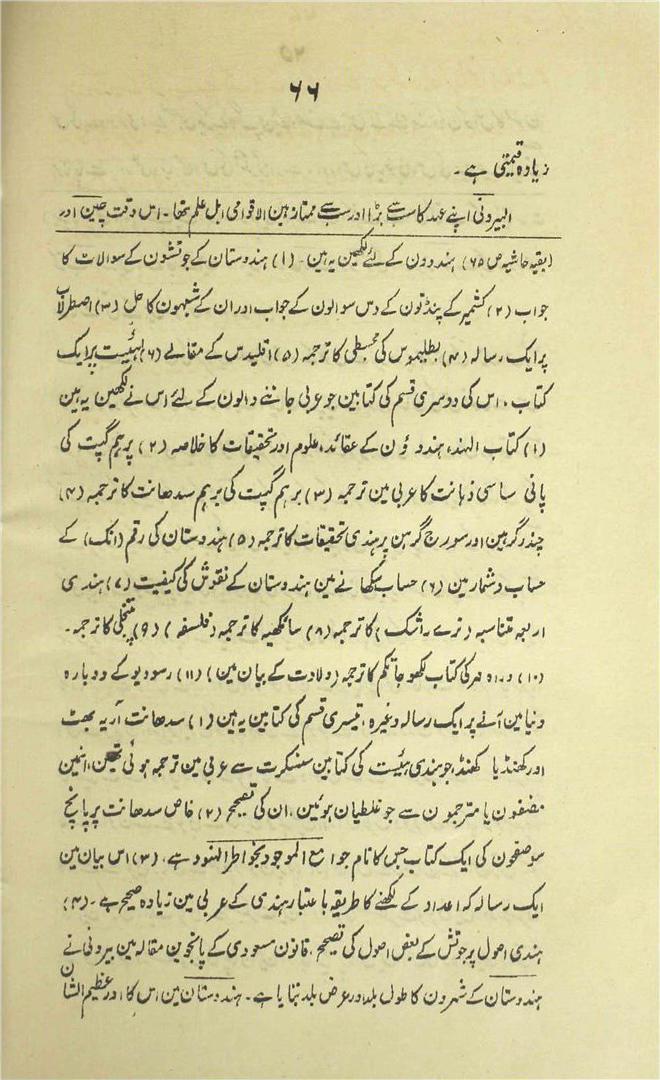 ۶۶
زیادہ قیمتی ہے۔
البیرونی اپنے عہد کا سب سے بڑا اور سب سے ممتاز بین الاقوامی اہل علم تھا۔ اس وقت چین اور
(بقیہ حاشیہ ص ۶۵) ہندوون کے لئے لکھین یہ ہین۔ (۱) ہندوستان کے جوتشون کے سوالات کا
جواب (۲) کشمیر کے پنڈتون کے دس سوالون کے جواب اور ان کے شبہون کا حل (۳) اصطرلاب
پر ایک رسالہ (۴) بطلیموس کی مجسطی کا ترجمہ (۵) اقلیدس کے مقالے (۶) ہیئیت پر ایک
کتاب، اس کی دوسری قسم کی کتابین جو عربی جاننے والون کے لئے اس نے لکھین یہ ہین
(۱) کتاب الہند، ہندوؤن کے عقائد، علوم اور تحقیقات کا خلاصہ (۲) برہم گپت کی
پانی ساسی ذہانت کا عربی مین ترجمہ (۳) برہم گپت کی برہم سدھانت کا ترجمہ (۴)
چندر گرہین اور سورج گرہن پر ہندی تحقیقات کا ترجمہ (۵) ہندوستان کی رقم (انک) کے
حساب و شمار مین (۶) حساب سکھانے مین ہندوستان کے نقوش کی کیفیت (۷) ہندی
اربعہ متناسبہ (ترے راشک) کا ترجمہ (۸) سانکھیہ کا ترجمہ (فلسفہ) (۹) پتنجلی کا ترجمہ۔
(۱۰) وراہ مہر کی کتاب لکھو جاتکم کا ترجمہ (ولادت کے بیان مین) (۱۱) رسودیو کے دوبارہ
دنیا مین آنے پر ایک رسالہ وغیرہ، تیسری قسم کی کتابین یہ ہین (۱) سدھانت آریہ بھٹ
اور کھنڈیا کھنڈ، جو ہندی ہیئت کی کتابین سنسکرت سے عربی مین ترجمہ ہوئی تھین، انمین
مصنفون یا مترجمون سے جو غلطیان ہوئین، ان کی تصحیح (۲) خاص سدھانت پر پانچ
سو صفحون کی ایک کتاب جس کا نام جوامع الموجود بخواطر الہنود ہے، (۳) اس بیان مین
ایک رسالہ کہ اعداد کے لکھنے کا طریقہ باعتبار ہندی کے عربی مین زیادہ صحیح ہے۔ (۴)
ہندی اصول پر جوتش کے بعض اصول کی تصحیح، قانون مسعودی کے پانچوین مقالہ مین بیرونی نے
ہندوستان کے شہرون کا طول بلد اور عرض بلد بتایا ہے۔ ہندوستان مین اس کا اور عظیم الشان